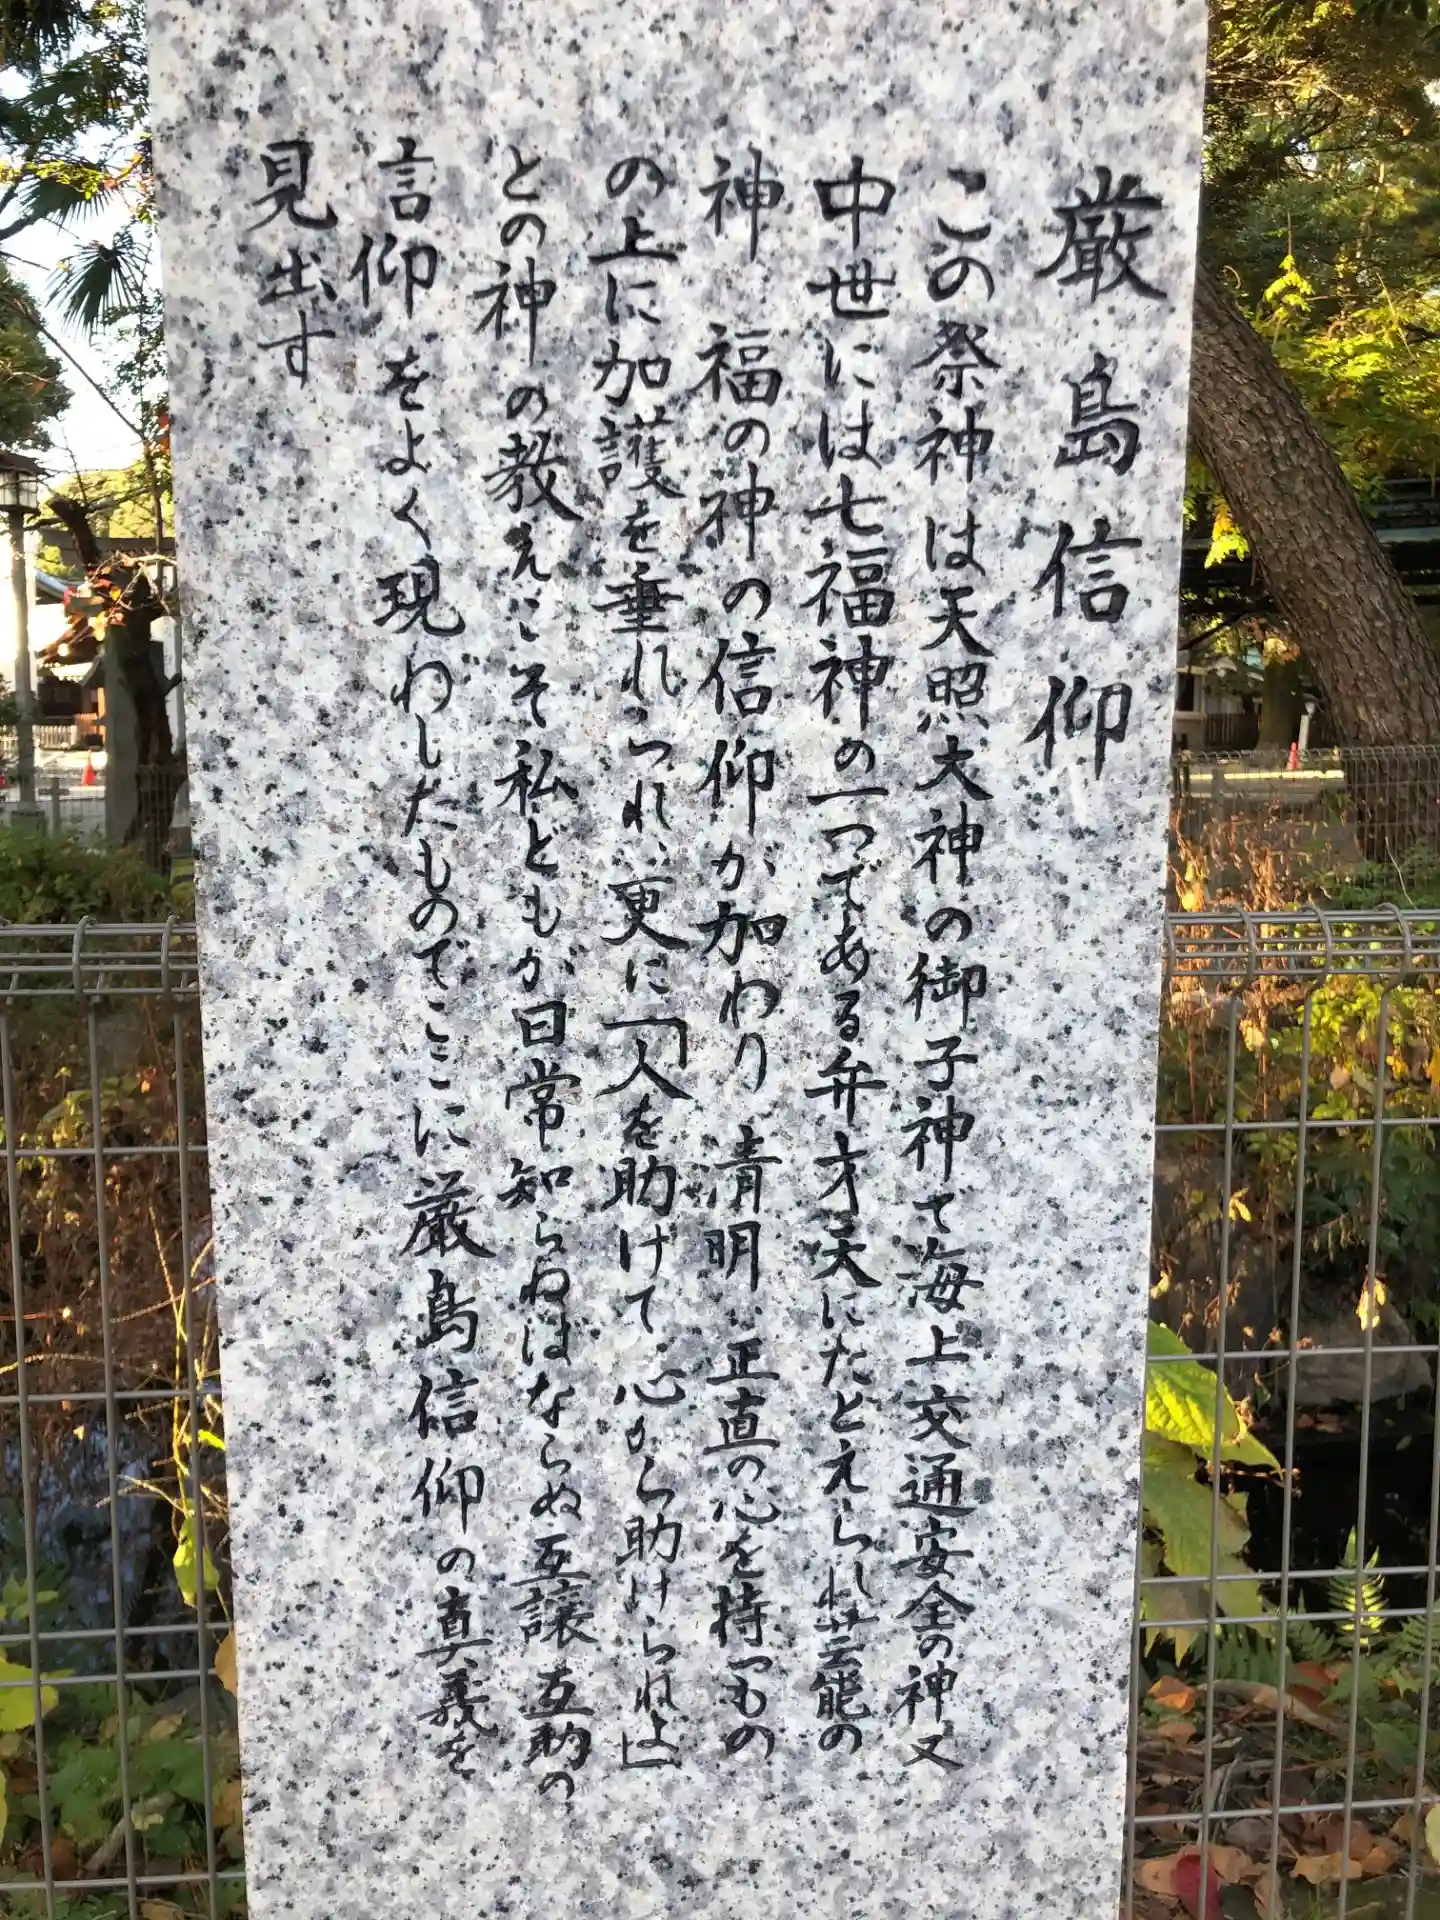 厳島信仰
この祭神は天照大神の御子神で海上交通安全の神又
中世には七福神の一つである弁才天にたとえられ芸能の
神 福の神の信仰が加わり 清明、正直の心を持つもの
の上に加護を垂れられ、更に「人を助けて、心から助けられよ」
との神の教えこそ私どもが日常知らねばならぬ互譲互助の
信仰をよく現わしたものでここに厳島信仰の真義を
見出す